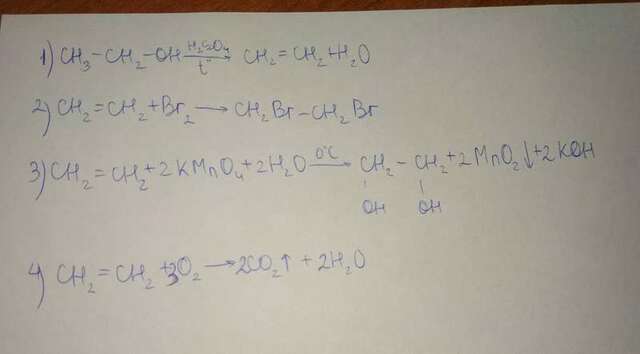 1) CH₃-CH₂-OH H₂SO₄ t° → CH₂=CH₂+H₂O
2) CH₂=CH₂+Br₂ → CH₂Br-CH₂Br
3) CH₂=CH₂+2KMnO₄+2H₂O 0°C → CH₂-CH₂+2MnO₂↓+2KOH
OH OH
4) CH₂=CH₂+3O₂ → 2CO₂↑+2H₂O